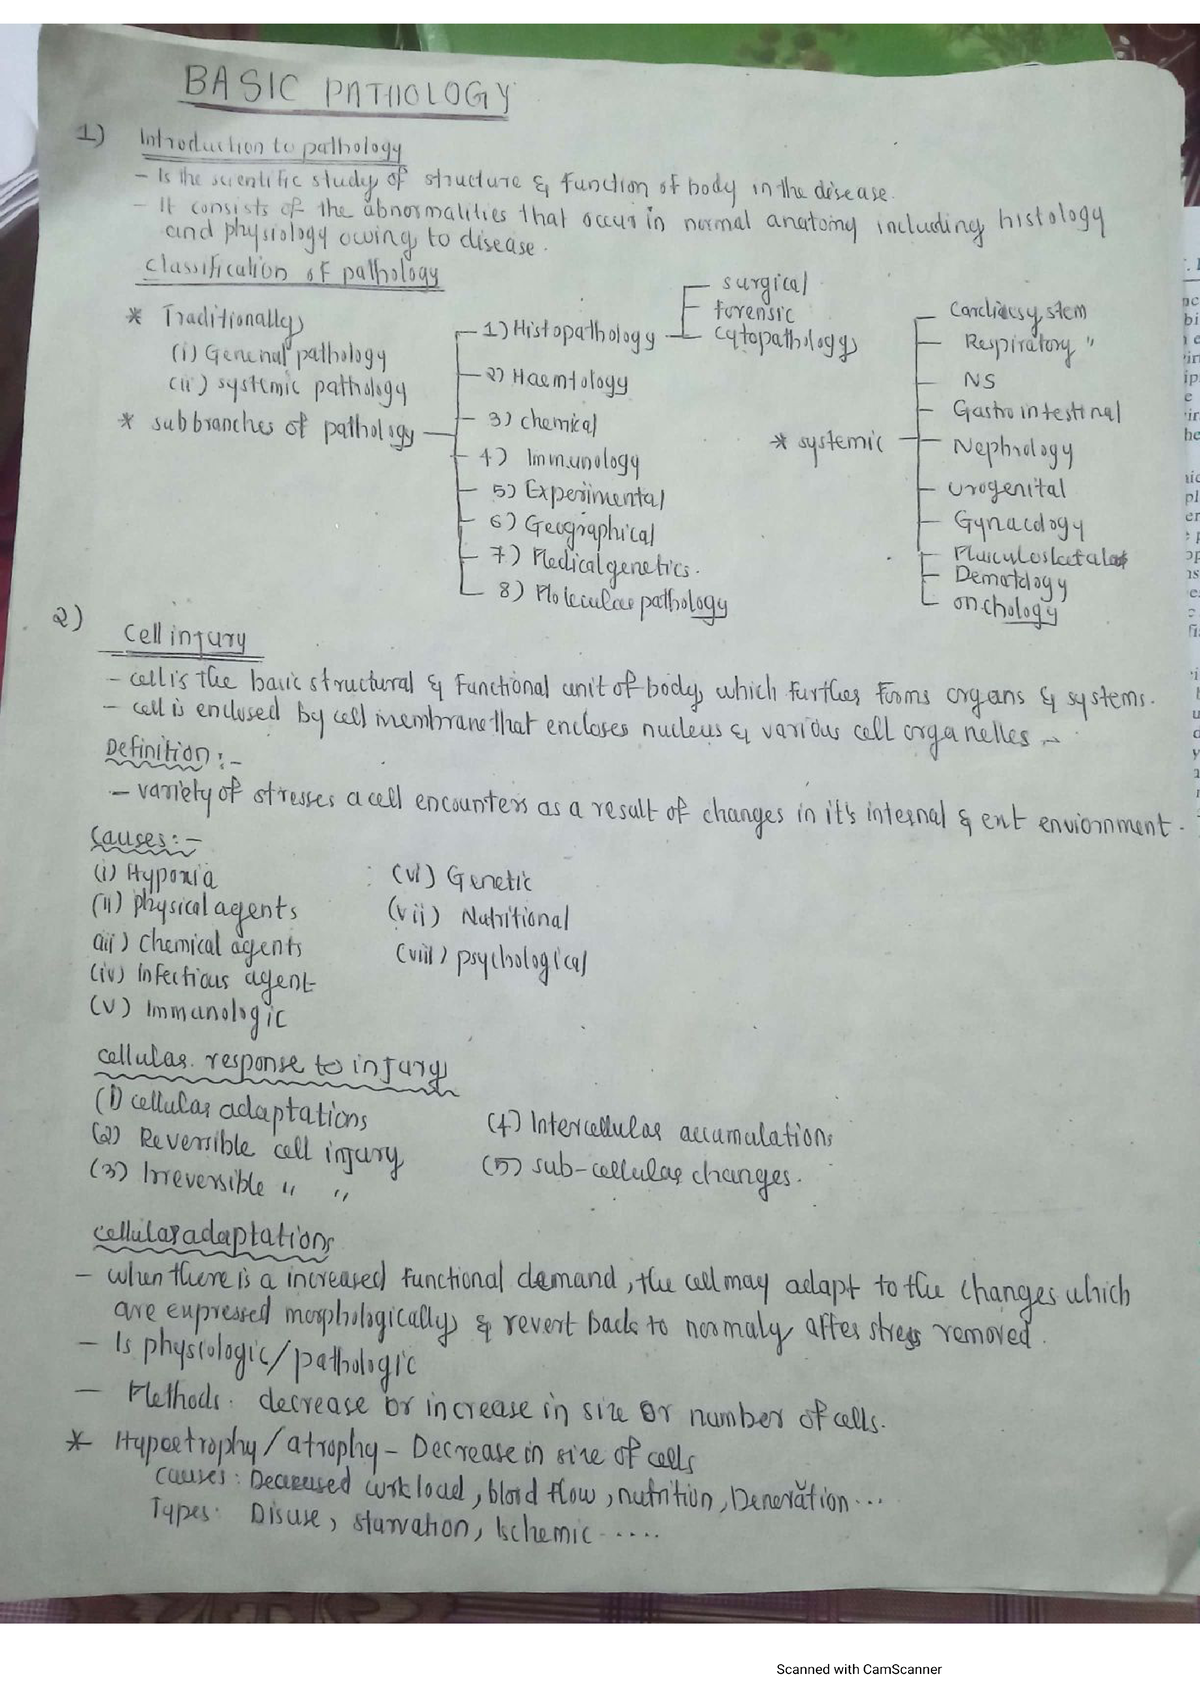 BASIC PATHOLOGY
1) Introduction to pathology
- Is the scientific study of structure & function of body in the disease.
- It consists of the abnormalities that occur in normal anatomy including histology
and physiology owing to disease.
Classification of pathology
* Traditionally
(i) General pathology
(ii) systemic pathology
* subbranches of pathology
1) Histopathology
surgical
forensic
cytopathology
2) Haemtology
3) chemical
4) Immunology
5) Experimental
6) Geographical
7) Medical genetics.
8) Molecular pathology
* systemic
Cardiacsystem
Respiratory "
NS
Gastrointestinal
Nephrology
urogenital
Gynacology
Dematology
onchology
2) Cell injury
- cell is the basic structural & Functional unit of body, which further forms organs & systems.
- cell is enclused by cell membrane that encloses nucleus & various cell organelles
Definition:-
- variety of stresses a cell encounters as a result of changes in it's internal & ext enviornment.
Causes:-
(i) Hypoxia
(ii) physical agents
(iii) chemical agents
(iv) Infectious agent
(v) Immunologic
(vi) Genetic
(vii) Nutritional
(viii) psychological
cellular response to injury
(1) cellular adaptations
(2) Reversible cell injury
(3) Irreversible " "
(4) Intercellular accumulations
(5) sub-cellular changes.
cellular adaptations
- when there is a increased functional demand, the cell may adapt to the changes which
are expressed morphologically & revert back to normaly after stress removed.
- Is physiologic/pathologic
- Methods: decrease or increase in size or number of cells.
* Hypoetrophy/atrophy - Decrease in size of cells
causes: Decreased workload, blood flow, nutrition, Deneration...
Types: Disuse, starvation, Ischemic.....
Scanned with CamScanner